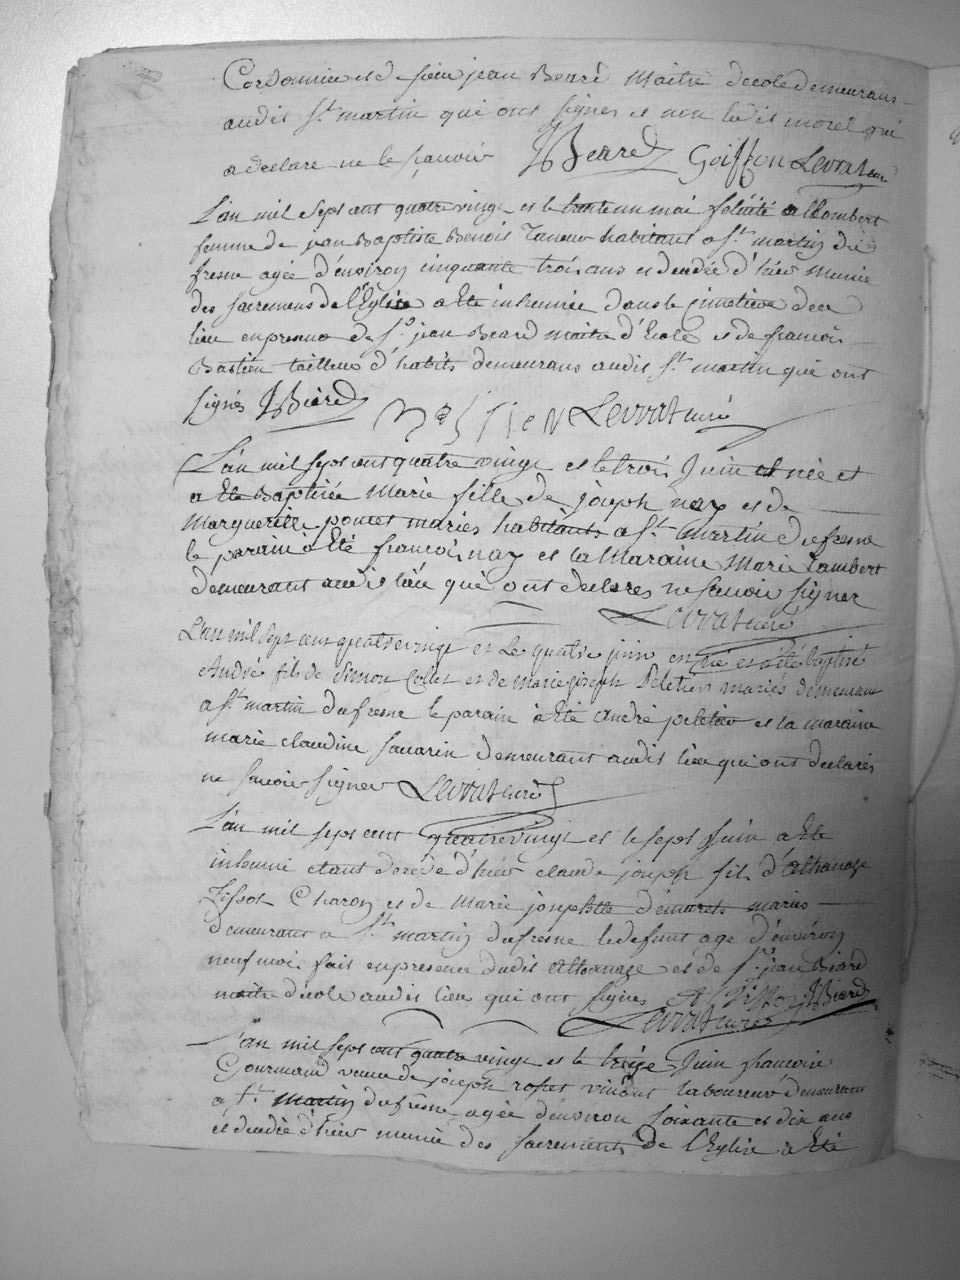 Cordonnier et de sieur jean Beard Maitre decole demeurans
audit St martin qui ont signes et non ledit morel qui
a declare ne le sçavoir JBeard Goiffon Levrat curé
L'an mil sept cent quatre vingt et le trente un mai felicité allombert
femme de jean Baptiste Benoit Taneur habitant a St martin du
fresne agée d'environ cinquante trois ans et decedée d'hier munie
des sacremens de l'Eglise a Eté inhumée dans le cimetiere du
lieu en presence de Sr jean Beard maitre d'Ecole et de francois
Bastien tailleur d'habits demeurans audit St martin qui ont
signés JBeard Bastien Levrat curé
L'an mil sept cent quatre vingt et le trois Juin est née et
a Eté Baptisée Marie fille de joseph nay et de
Margueritte poncet mariés habitants a St martin du fresne
le parain a Eté francois nay et la Maraine Marie Lambert
demeurant audit lieu qui ont declarés ne sçavoir signer
Levrat curé
L'an mil sept cent quatre vingt et Le quatre juin est né et a été baptisé
André fils de Simon Collet et de marie joseph Peletier mariés demeurant
a St martin du fresne le parain a Eté André peletier et la maraine
marie claudine savarin demeurant audit lieu qui ont declarés
ne savoir signer Levrat curé
L'an mil sept cent quatre vingt et le sept Juin a Eté
inhumé etant decedé d'hier claude joseph fils d'athanase
Tissot Charon et de Marie josephtte demarets mariés
demeurant a St martin du fresne le defunt agé d'environ
neuf mois fait en presence dudit athanase et de Sr jean Béard
maitre décole audit lieu qui ont signés A Tissot JBeard
Levrat curé
L'an mil sept cent quatre vingt et le treize Juin francoise
Gourmand veuve de joseph vivant laboureur demeurant
a St Martin du fresne agée d'environ soixante et dix ans
et decedée d'hier munie des sacrements de l'Eglise a Eté